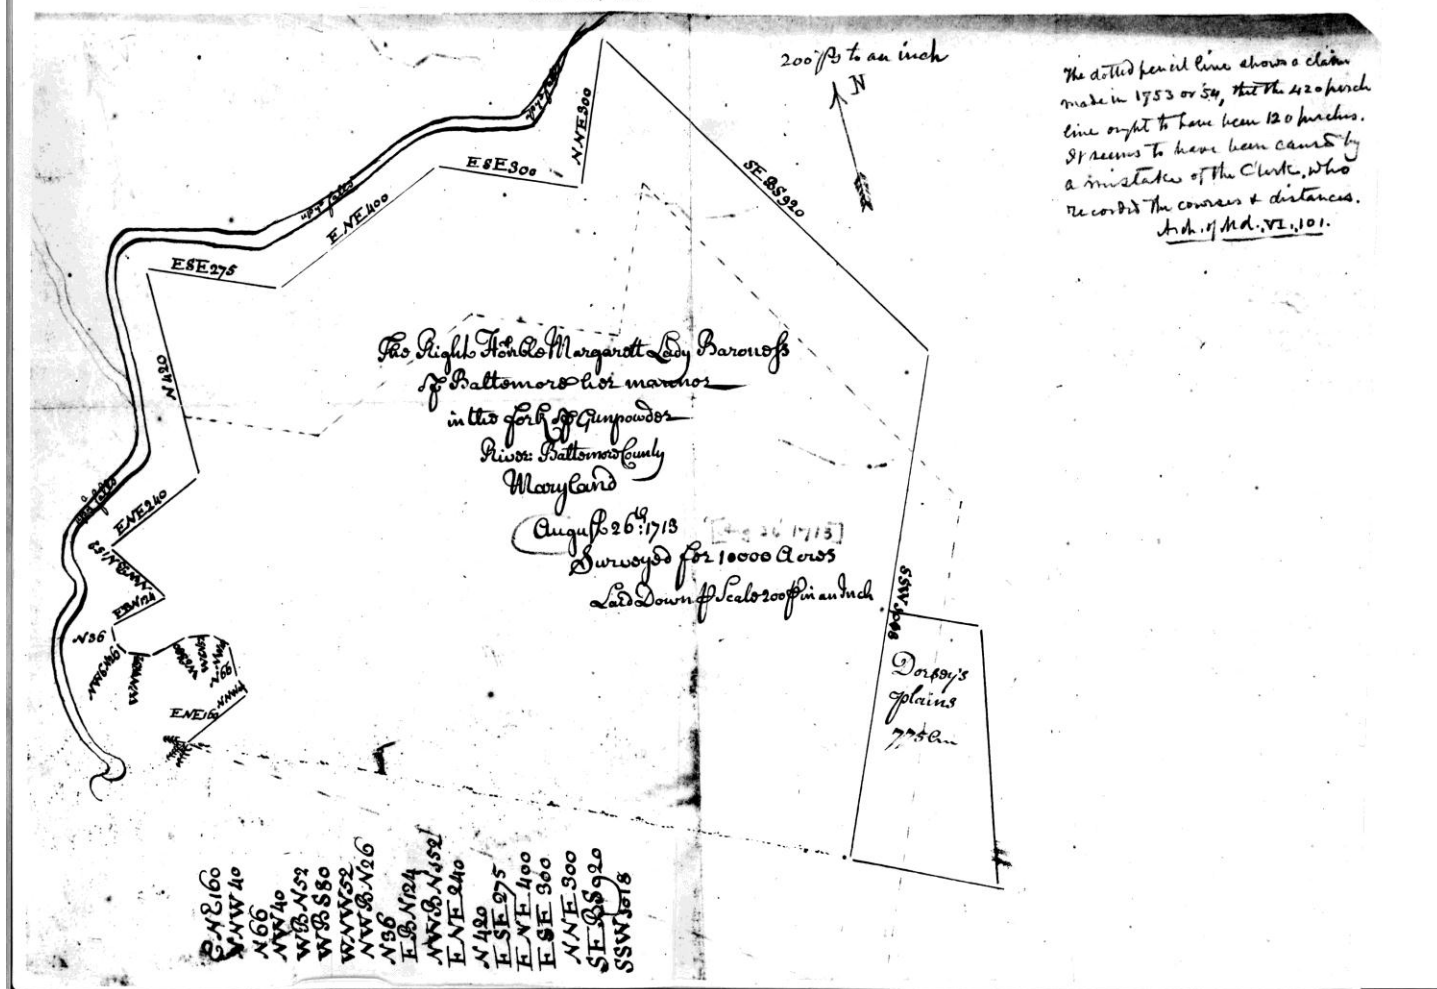 200 ps to an inch
N
The dotted pencil line shows a claim
made in 1753 or 54, that the 420 perch
line ought to have been 120 perches.
It seems to have been caused by
a mistake of the Clerk, who
recorded the courses & distances.
Arch. of Md., VI., 101.
NNE300
ESE300
SEBS920
ENE400
ESE275
N420
The Right Honble Margarett Lady Baroness
of Baltemore her mannor
in the fork of Gunpowder
River: Baltemore County
Maryland
August 26th: 1713
Surveyed for 10000 Acres
Laid Down p Scale 200 p in an Inch
ENE240
NWBN152
EBN124
N36
NWBN26
WNW52
N66
NNW40
ENE160
SSW
Dorsey's
plains
ENE160
NNW40
N66
NW40
WBN52
WBS80
WNW52
NWBN26
N36
EBN124
NWBN152
ENE240
N420
ESE275
ENE400
ESE300
NNE300
SEBS920
SSW1018